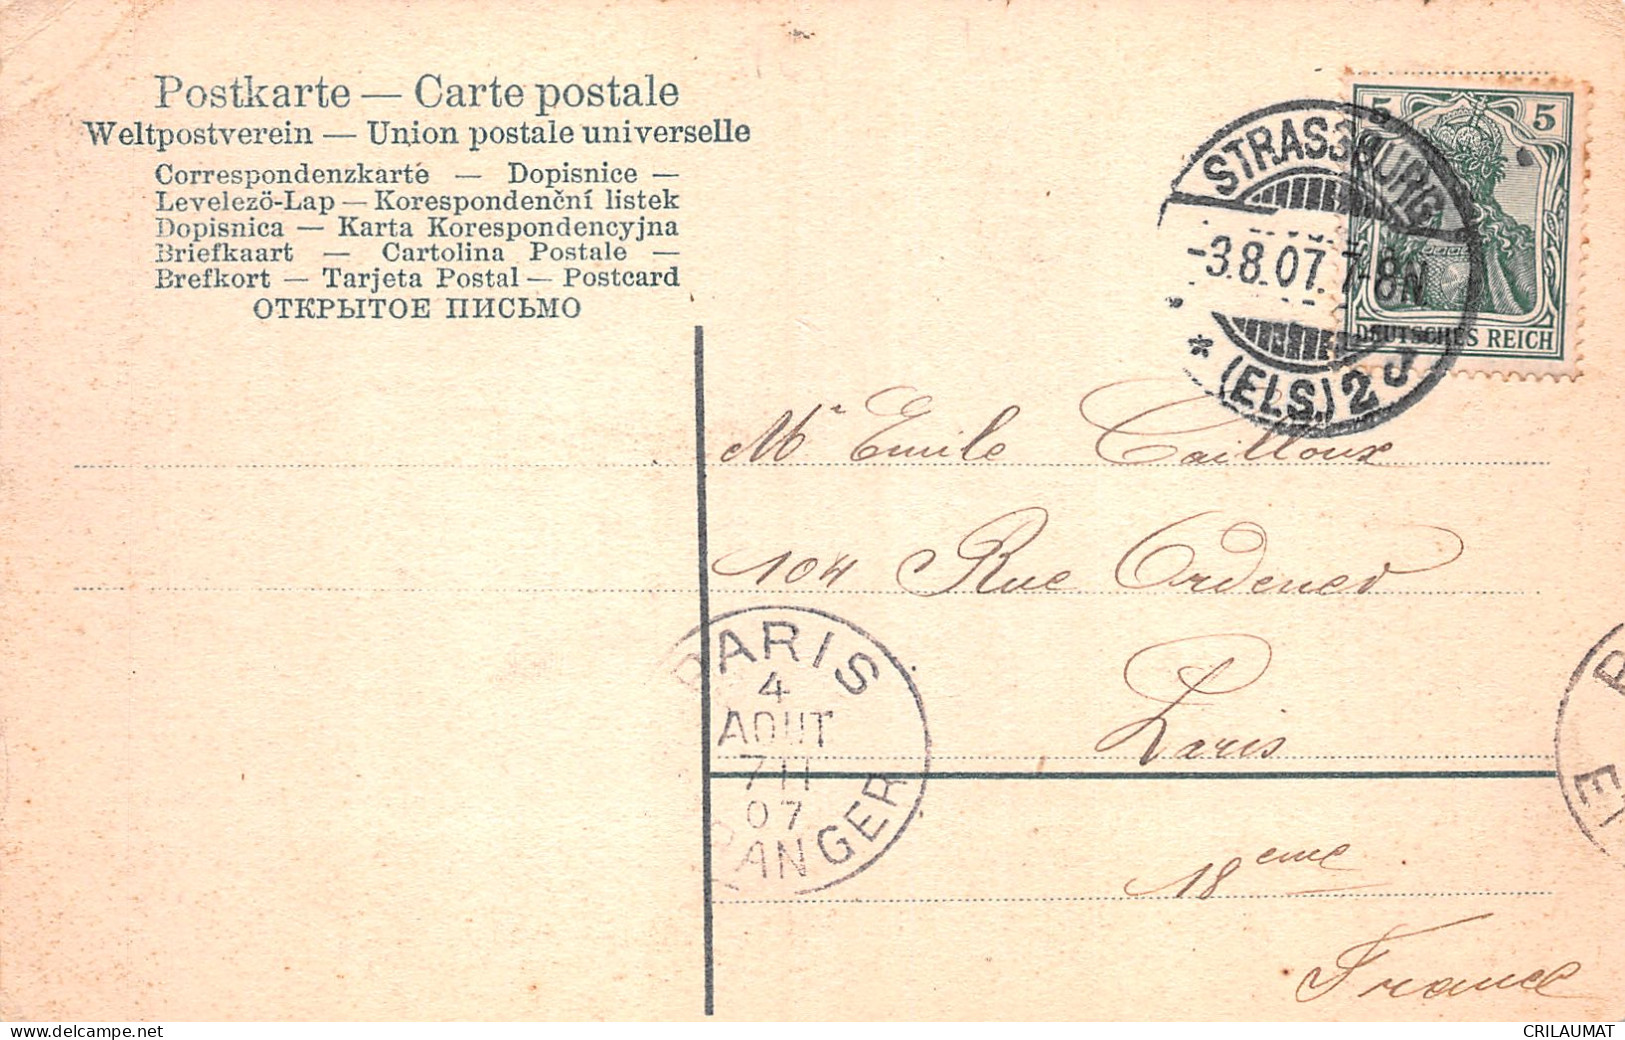 Postkarte — Carte postale
Weltpostverein — Union postale universelle
Correspondenzkarte — Dopisnice —
Levelezö-Lap — Korespondenční listek
Dopisnica — Karta Korespondencyjna
Briefkaart — Cartolina Postale —
Brefkort — Tarjeta Postal — Postcard
ОТКРЫТОЕ ПИСЬМО
5 5
DEUTSCHES REICH
STRASSBURG
-3.8.07. 7-8N
* (ELS.) 2 J
Mr Emile Cailloux
104 Rue Ordener
Paris
18eme
France
PARIS
4
AOUT
7 11
07
ETRANGER
delcampe.net
CRILAUMAT